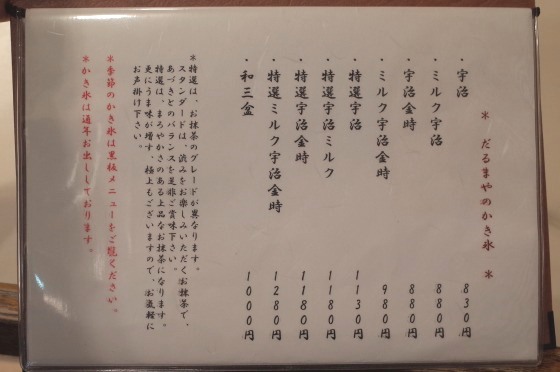 ＊ だるまやのかき氷 ＊
・宇治 830円
・ミルク宇治 880円
・宇治金時 880円
・ミルク宇治金時 980円
・特選宇治 1130円
・特選宇治ミルク 1180円
・特選宇治金時 1180円
・特選ミルク宇治金時 1280円
・和三盆 1000円
＊特選は、お抹茶のグレードが異なります。
スタンダードは、渋みをお楽しみいただくお抹茶で、
あづきとのバランスを是非ご賞味下さい。
特選は、まろやかさのある上品なお抹茶になります。
更にうま味が増す、極上もございますので、お気軽に
お声掛け下さい。
＊季節のかき氷は黒板メニューをご覧ください。
＊かき氷は通年お出ししております。